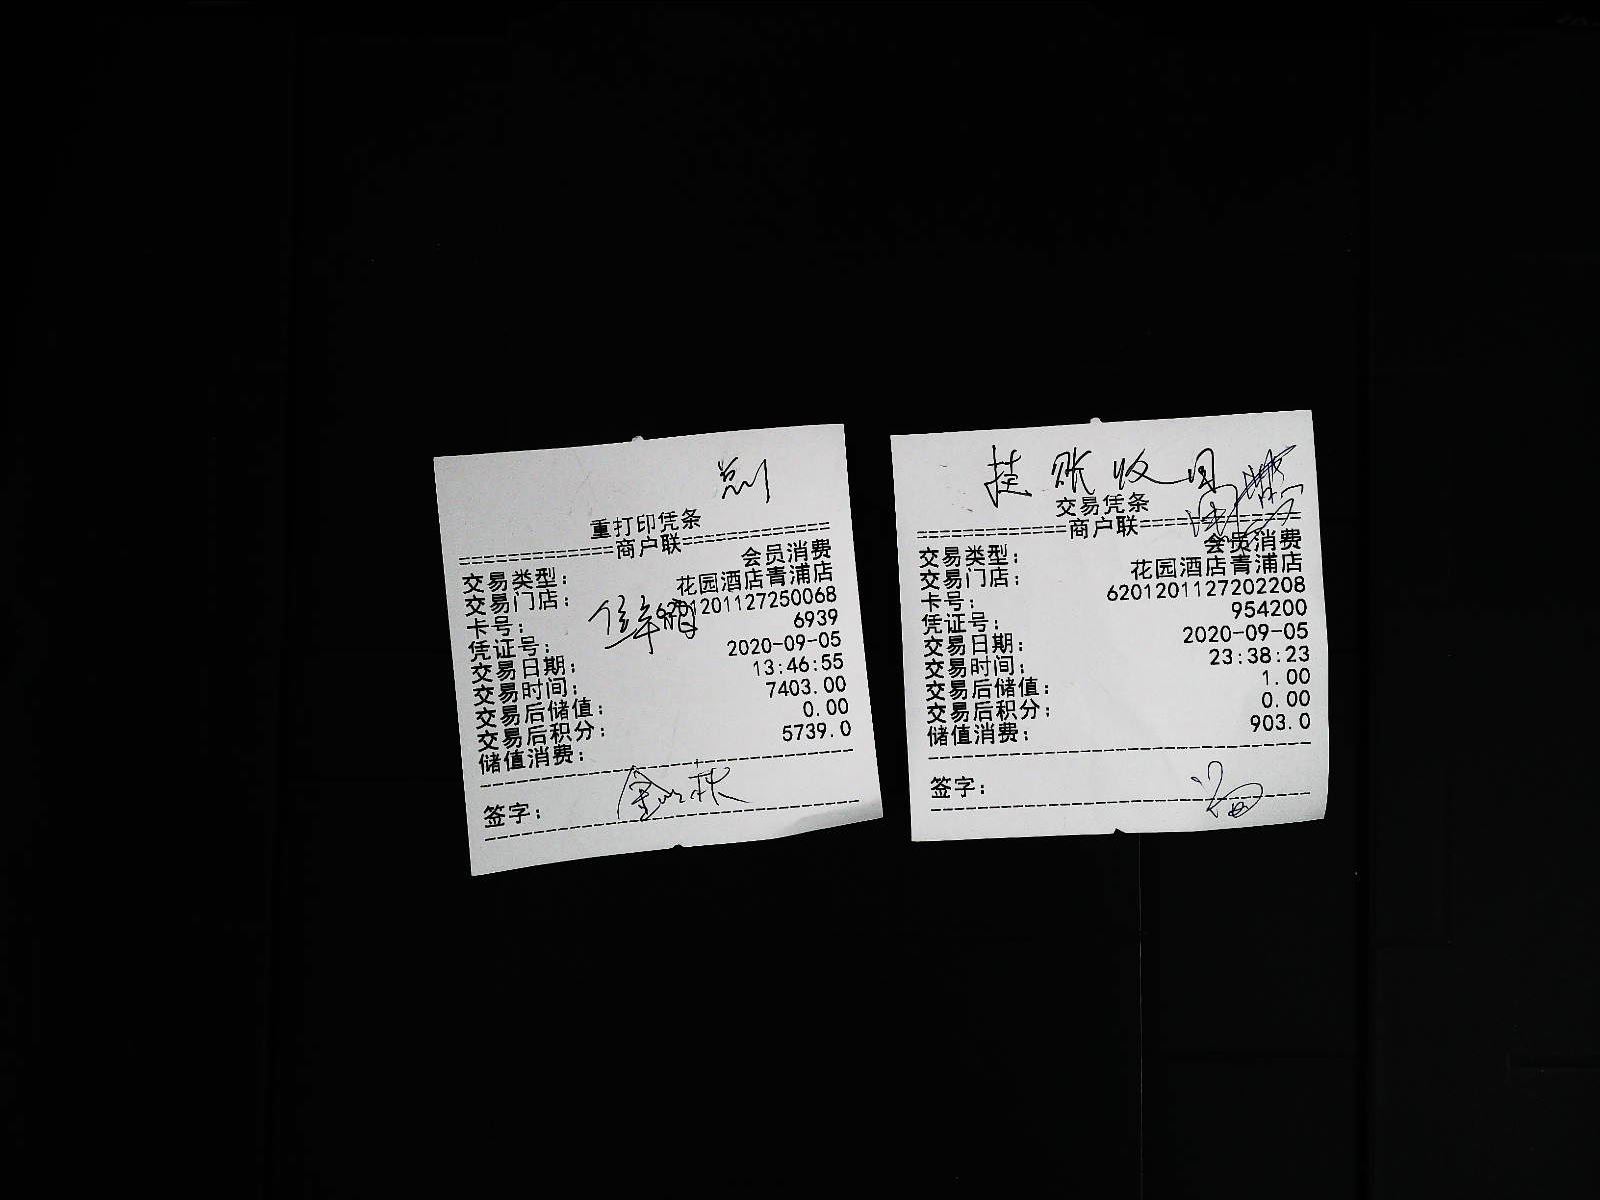 重打印凭条
============商户联============
交易类型： 会员消费
交易门店： 花园酒店青浦店
卡号： 6201201127250068
凭证号： 6939
交易日期： 2020-09-05
交易时间： 13:46:55
交易后储值： 7403.00
交易后积分： 0.00
储值消费： 5739.0
签字：
挂账收回
交易凭条
============商户联============
交易类型： 会员消费
交易门店： 花园酒店青浦店
卡号： 6201201127202208
凭证号： 954200
交易日期： 2020-09-05
交易时间： 23:38:23
交易后储值： 1.00
交易后积分： 0.00
储值消费： 903.0
签字：